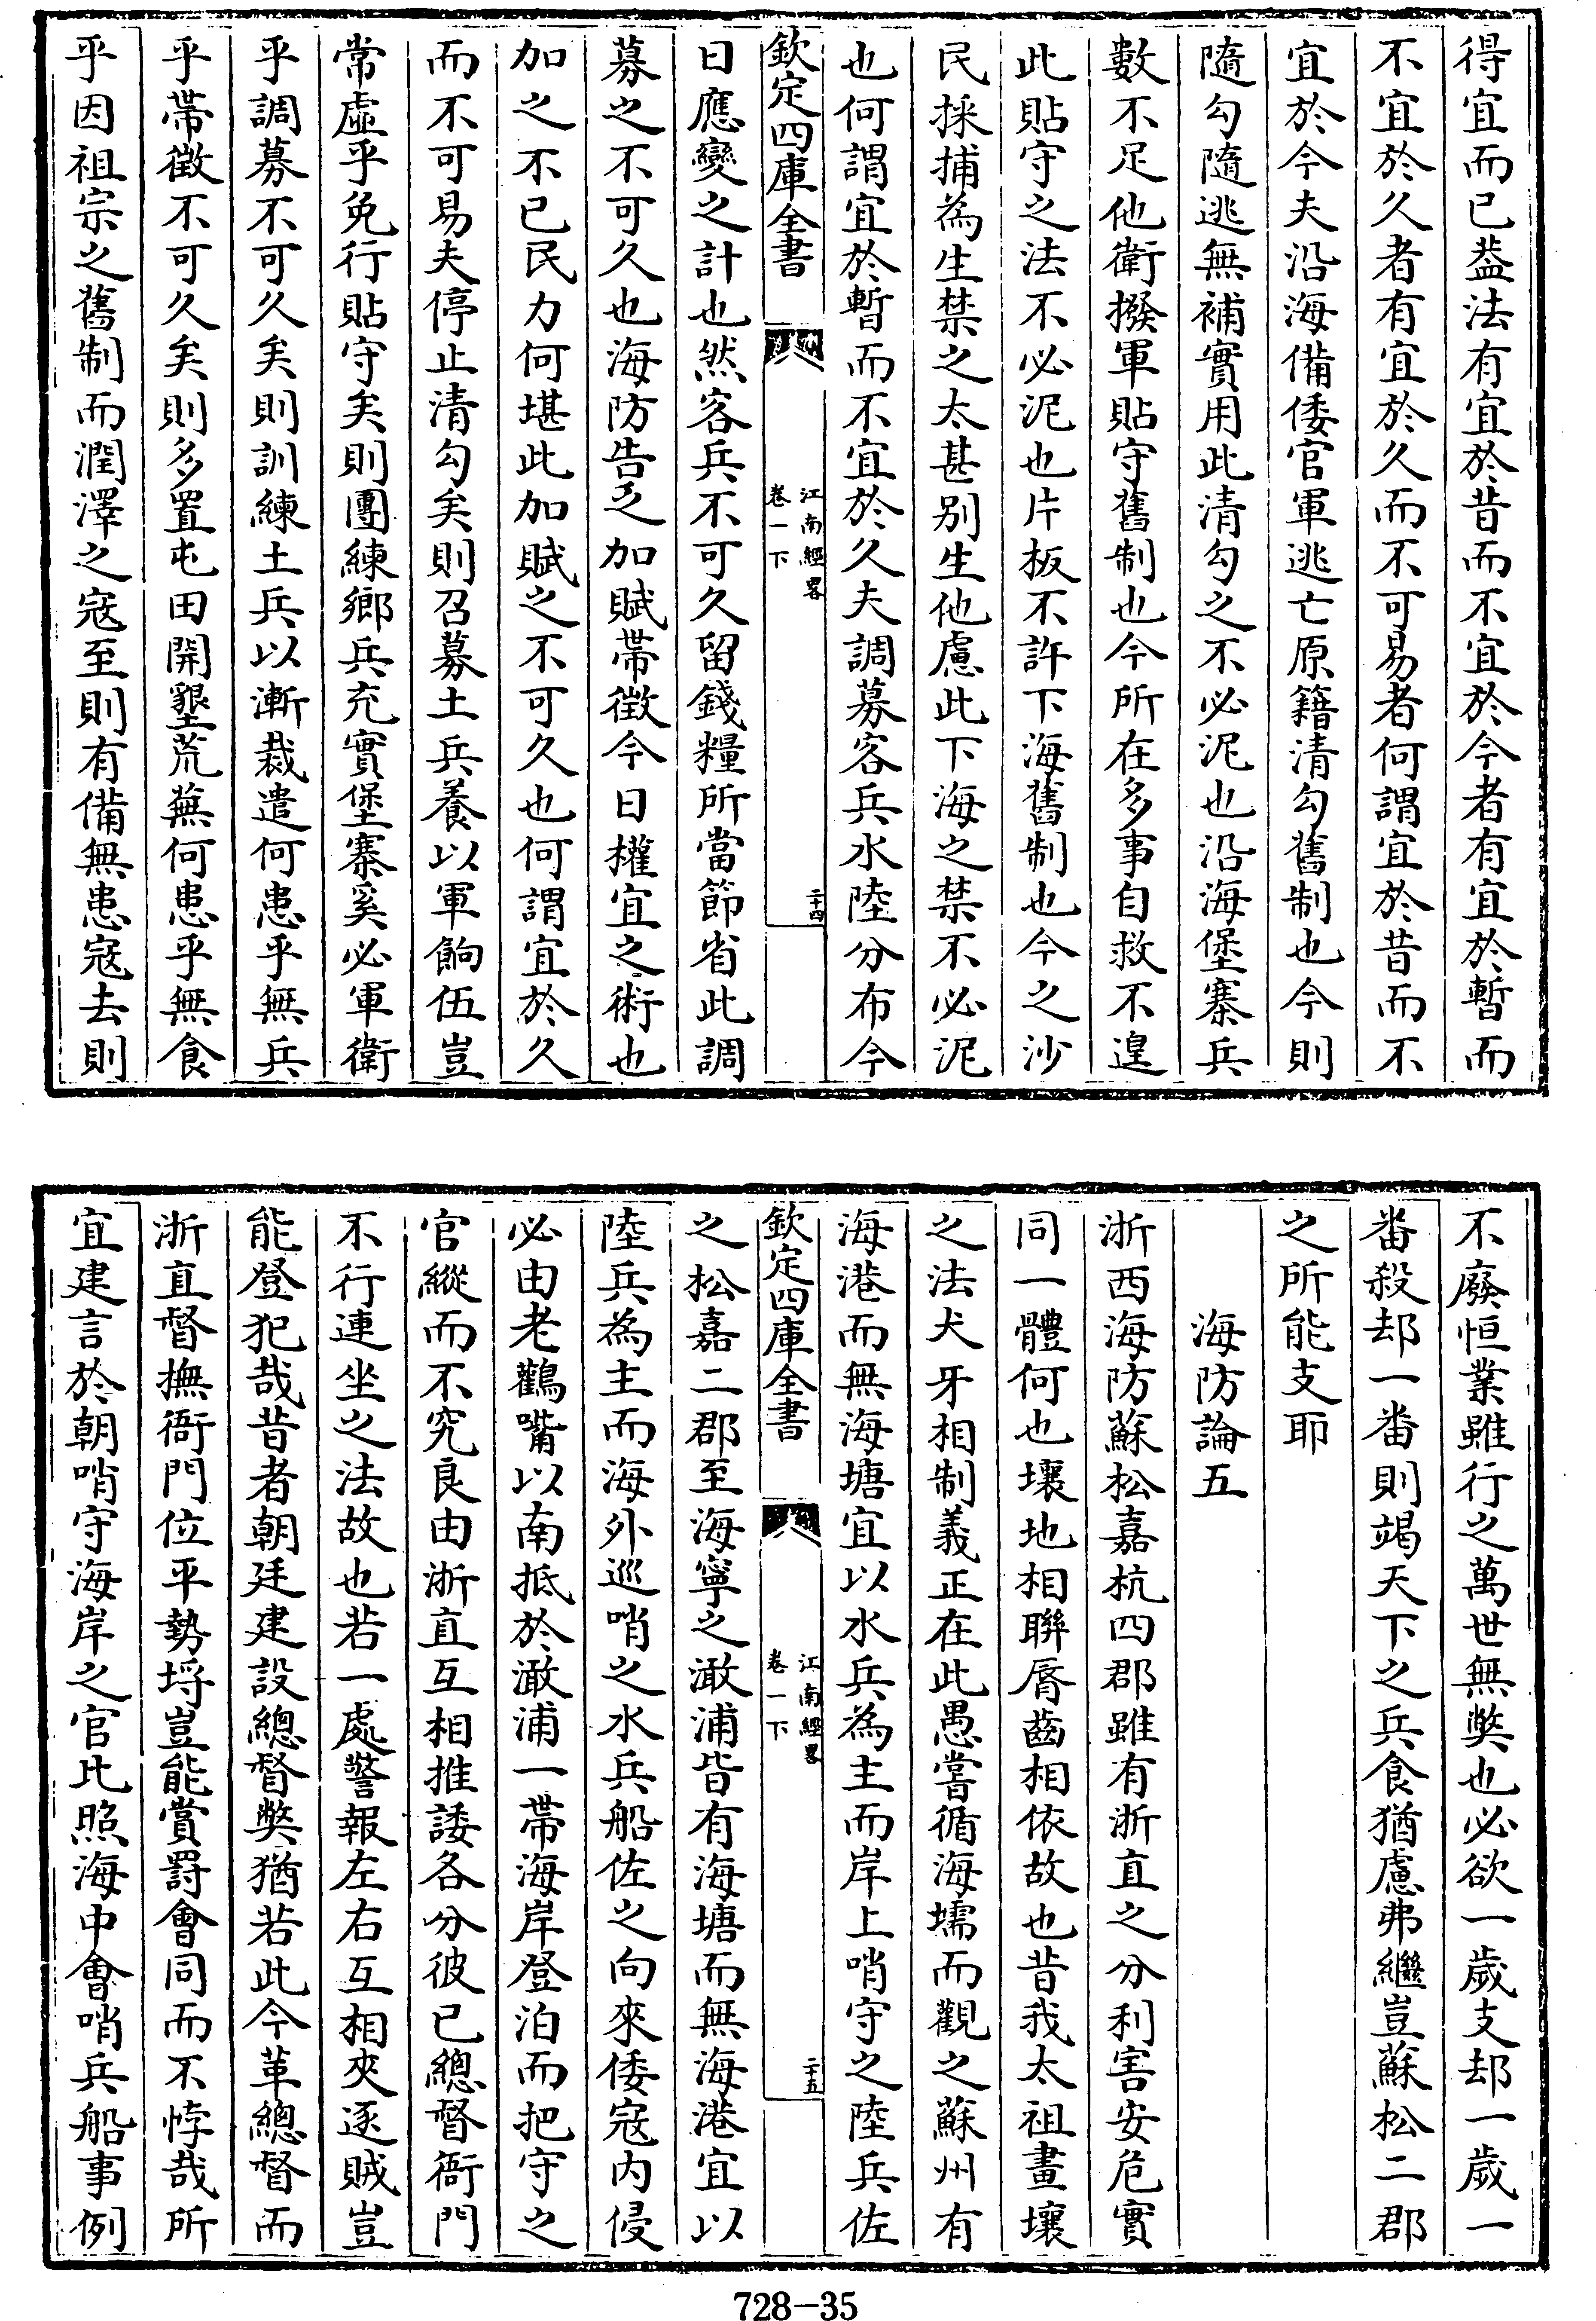 得宜而已葢法有宜於昔而不宜於今者有宜於暫而
不宜於久者有宜於久而不可易者何謂宜於昔而不
宜於今夫沿海備倭官軍逃亡原籍清勾舊制也今則
隨勾隨逃無補實用此清勾之不必泥也沿海堡寨兵
數不足他衛撥軍貼守舊制也今所在多事自救不遑
此貼守之法不必泥也片板不許下海舊制也今之沙
民採捕為生禁之太甚别生他慮此下海之禁不必泥
也何謂宜於暫而不宜於久夫調募客兵水陸分布今
欽定四庫全書
江南經畧
卷一下
二十四
日應變之計也然客兵不可久留錢糧所當節省此調
募之不可久也海防告乏加賦帶徵今日權宜之術也
加之不已民力何堪此加賦之不可久也何謂宜於久
而不可易夫停止清勾矣則召募土兵養以軍餉伍豈
常虚乎免行貼守矣則團練鄉兵充實堡寨奚必軍衛
乎調募不可久矣則訓練土兵以漸裁遣何患乎無兵
乎帶徵不可久矣則多置屯田開墾荒蕪何患乎無食
乎因祖宗之舊制而潤澤之寇至則有備無患寇去則
不廢恒業雖行之萬世無獘也必欲一歲支却一歲一
番殺却一番則竭天下之兵食猶慮弗繼豈蘇松二郡
之所能支耶
海防論五
浙西海防蘇松嘉杭四郡雖有浙直之分利害安危實
同一體何也壤地相聯脣齒相依故也昔我太祖畫壤
之法犬牙相制義正在此愚嘗循海壖而觀之蘇州有
海港而無海塘宜以水兵為主而岸上哨守之陸兵佐
欽定四庫全書
江南經畧
卷一下
二十五
之松嘉二郡至海寧之澉浦皆有海塘而無海港宜以
陸兵為主而海外巡哨之水兵船佐之向來倭寇内侵
必由老鸛嘴以南抵於澉浦一帶海岸登泊而把守之
官縱而不究良由浙直互相推諉各分彼己總督衙門
不行連坐之法故也若一處警報左右互相夾逐賊豈
能登犯哉昔者朝廷建設總督獘猶若此今革總督而
浙直督撫衙門位平勢埒豈能賞罰會同而不悖哉所
宜建言於朝哨守海岸之官比照海中會哨兵船事例
728-35